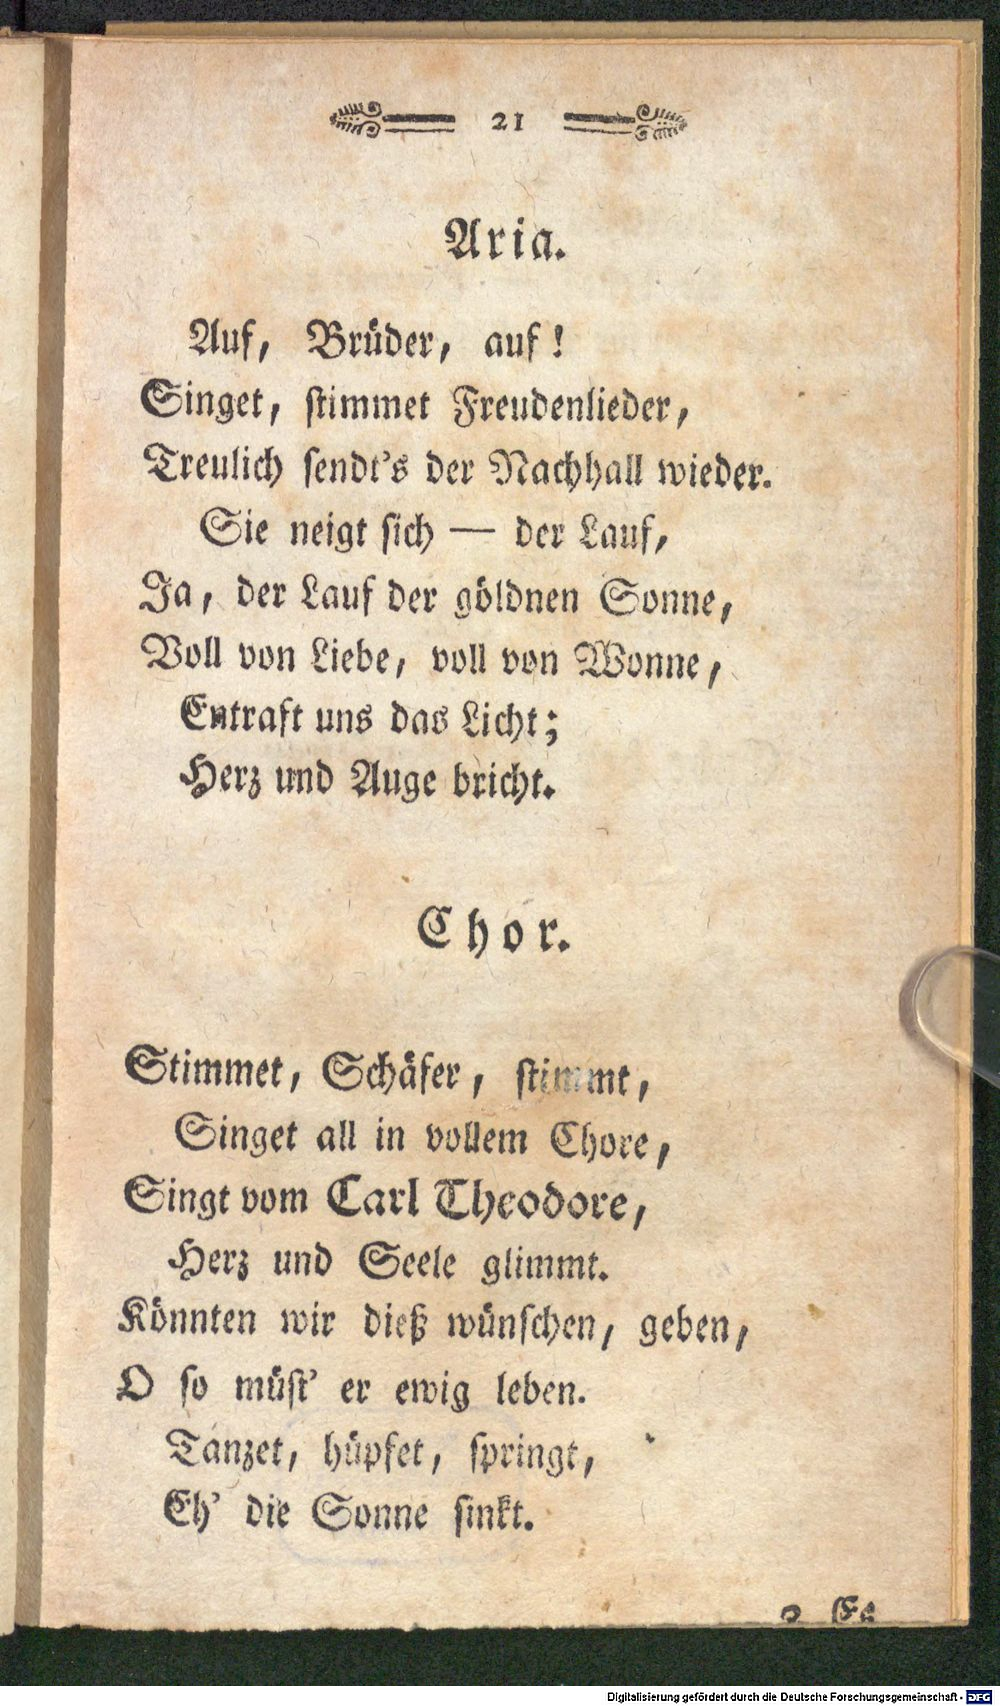 21
Aria.
Auf, Brüder, auf!
Singet, stimmet Freudenlieder,
Treulich sendt's der Nachhall wieder.
Sie neigt sich — der Lauf,
Ja, der Lauf der göldnen Sonne,
Voll von Liebe, voll von Wonne,
Entraft uns das Licht;
Herz und Auge bricht.
Chor.
Stimmet, Schäfer, stimmt,
Singet all in vollem Chore,
Singt vom Carl Theodore,
Herz und Seele glimmt.
Könnten wir dieß wünschen, geben,
O so müst' er ewig leben.
Tanzet, hüpfet, springt,
Eh' die Sonne sinkt.
Digitalisierung gefördert durch die Deutsche Forschungsgemeinschaft - DFG